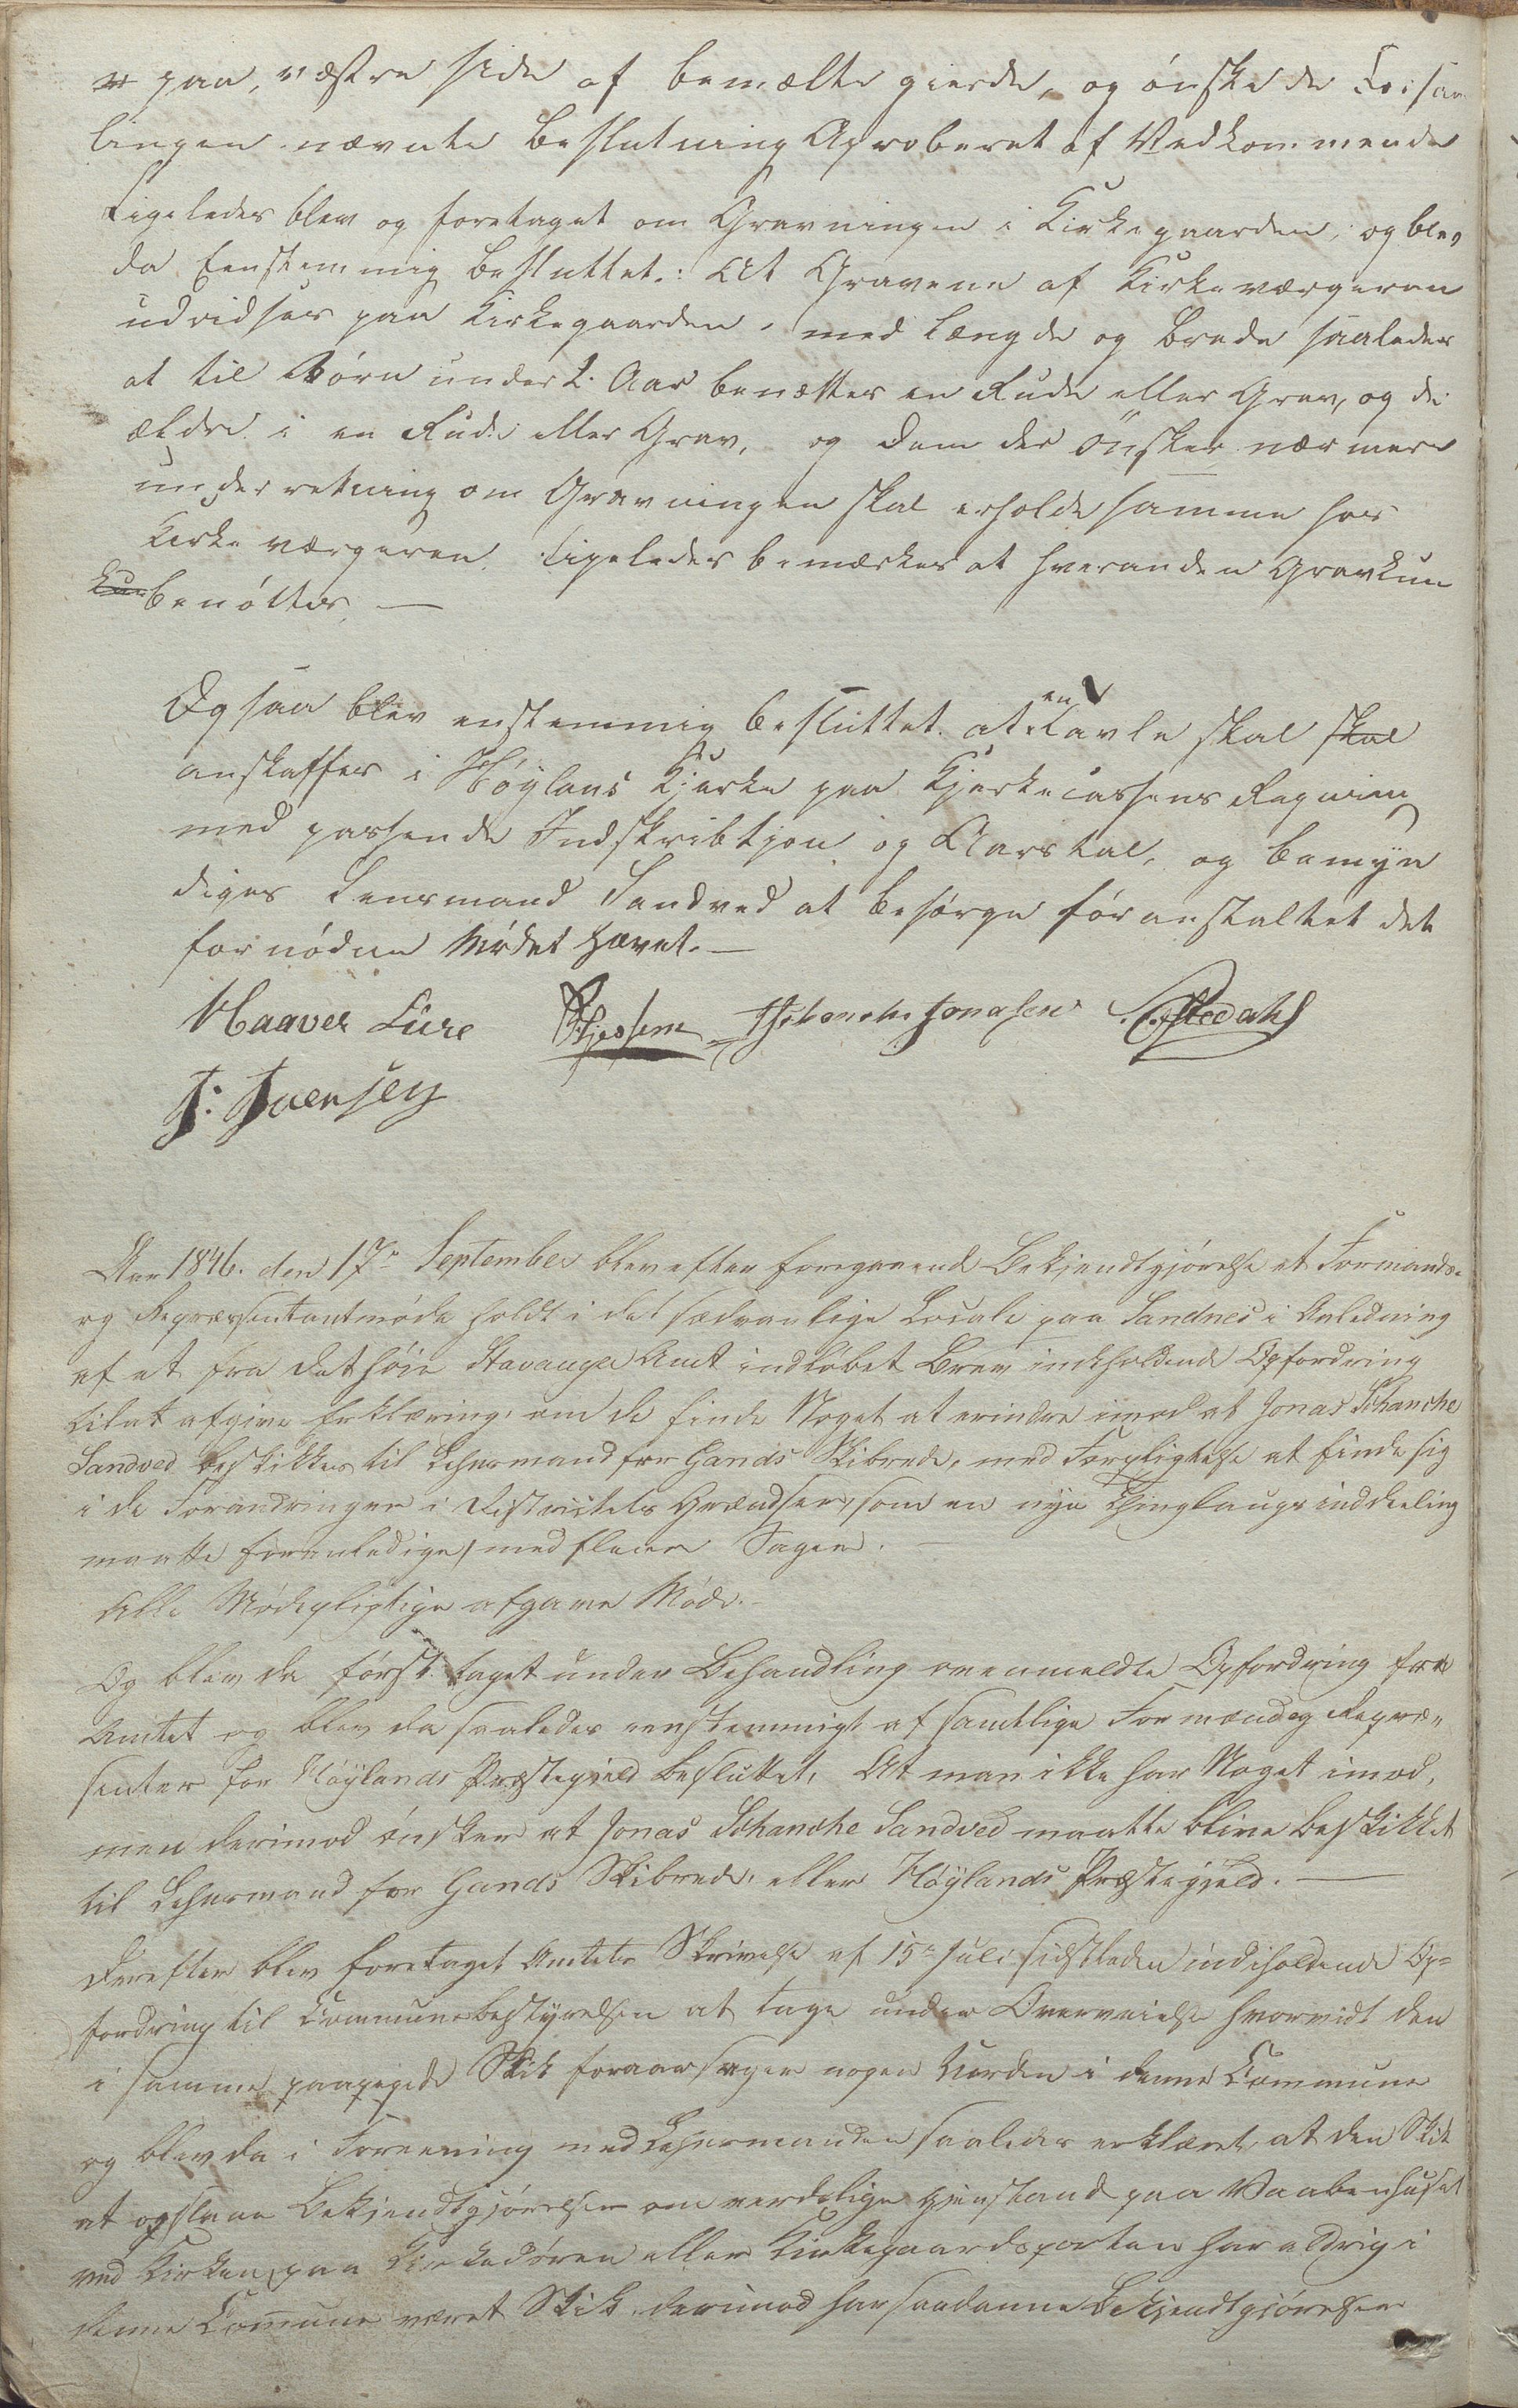 er paa, østre side af bemælte gierde, og ønskede Forsam
lingen nævnte Beslutning Aproberet af Vedkommende
Ligeledes blev og foretaget om Gravningen i Kirkegaarden, og blev
da Eenstemmig besluttet: At Gravene af Kirkeværgeren
udvidses paa Kirkegaarden, med Længde og Brede saaledes
at til Børn under 2. Aar benøttes en Rude eller Grav, og de
ældre i en Rude eller Grav, og dem der ønsker nærmere
underretning om Gravningen skal erholde samme hos
Kirkeværgeren. Ligeledes bemærkes at hveranden Grav kun
kun benøttes. —
Ogsaa blev enstemmig besluttet. at en Tavle skal skal
anskaffes i Høylans Kjerke paa Kjerkecassens Regning
med passende Indskribtjon og Aarstal, og bemyn
diges Lensmand Sandved at besørge føranstaltet det
fornødne Mødet hævet. —
Haaver Lure Jonasen
J: Ivensen
Aar 1846. den 17de September blev efter foregaaende Bekjendtgjørelse et Formands-
og Repræsentantmøde holdt i det sædvanlige Locale paa Sandnes i Anledning
af et fra det høie Stavanger Amt indløbet Brev indeholdende Opfordring
til at afgive Erklæring, om de finde Noget at erindre imod at Jonas Schanche
Sandved beskikkes til Lehnsmand for Gands Skibrede, med Forpligtelse at finde sig
i de Forandringer i Districtets Grændser, som en nye Thinglaugs inddeeling
maatte foranledige, med fleere Sager. —
Alle Mødepligtige afgave Møde. —
Og blev da først taget under Behandling ovenmeldte Opfordring fra
Amtet og blev da saaledes eenstemmigt af samtlige Formænd og Repræ„
senter for Høylands Præstegjeld besluttet, At man ikke har Noget imod,
men derimod ønsker at Jonas Schanche Sandved maatte blive beskikket
til Lehnsmand for Gands Skibrede, eller Høylands Præstegjeld. —
Derefter blev foretaget Amtets Skrivelse af 15de Juli sidstleden indeholdende Op=
fordring til Communebestyrelsen at tage under Overveielse hvorvidt den
i samme paapegede Skik foraarsager nogen Uorden i denne Commune
og blev da i Foreening med Lehnsmanden saaledes erklæret, at den Skik
at opslaae Bekjendtgjørelser om verdslige Gjenstand paa Vaabenhuset
ved Kirken, paa Kirkedøren eller Kirkegaardsporten har aldrig i
denne Commune været Skik, derimod har saadanne Bekjendtgjørelser